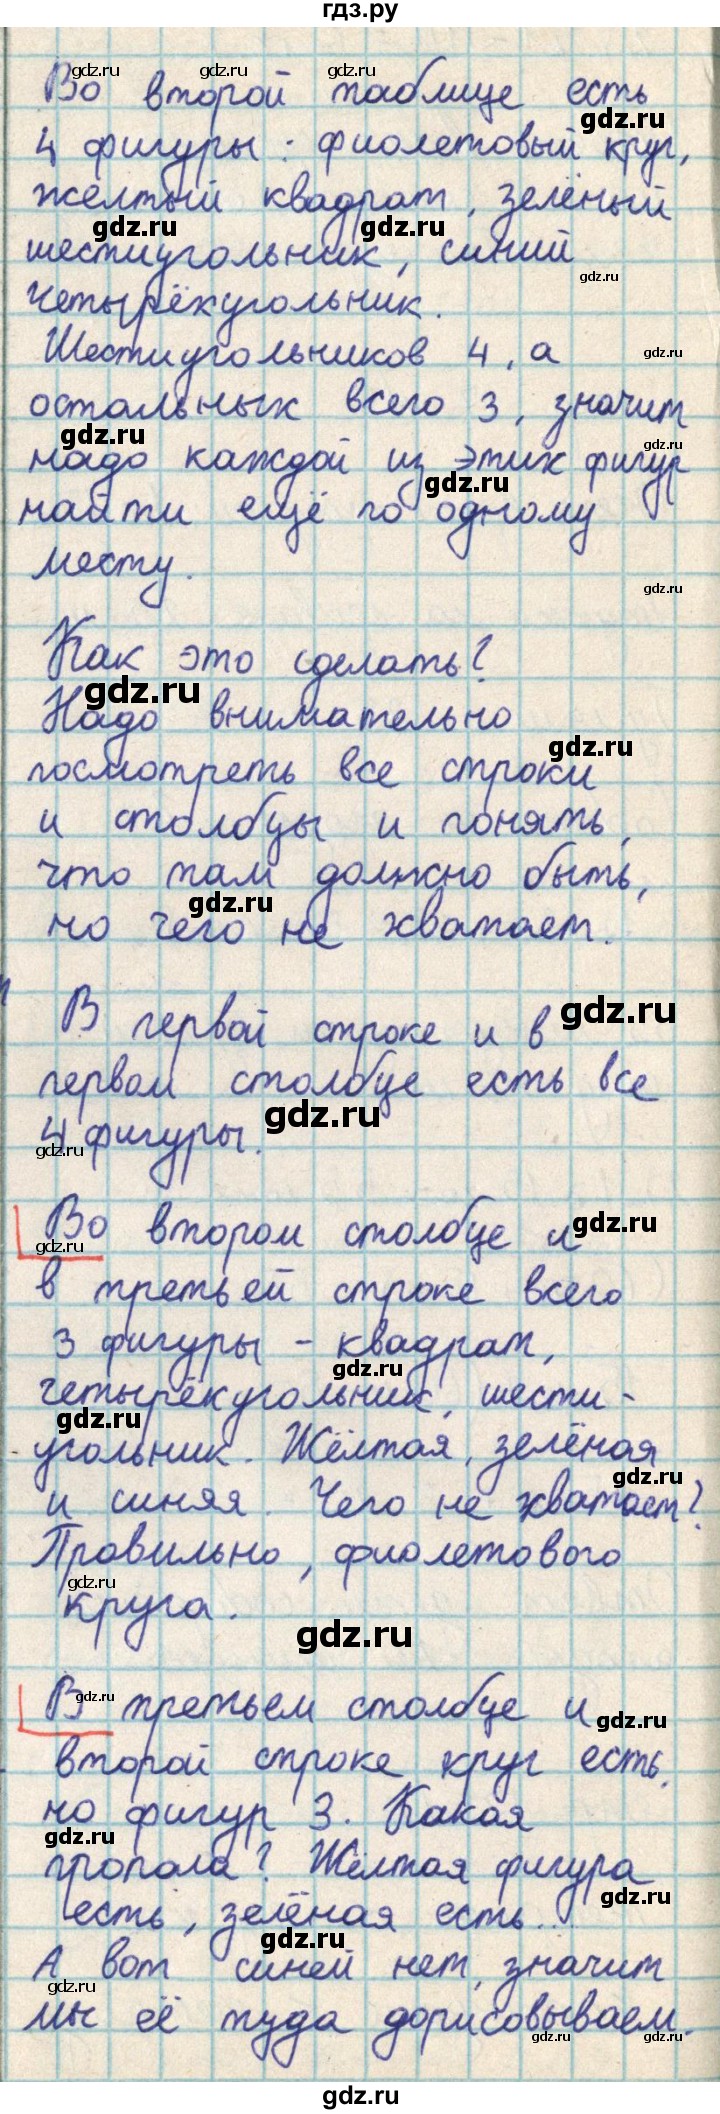 гдз.ру
Во второй таблице есть
4 фигуры: фиолетовый круг,
жёлтый квадрат, зелёный
шестиугольник, синий
четырёхугольник.
Шестиугольников 4, а
остальных всего 3, значит
надо каждой из этих фигур
найти ещё по одному
месту.
Как это сделать?
Надо внимательно
посмотреть все строки
и столбцы и понять,
что там должно быть,
но чего не хватает.
В первой строке и в
первом столбце есть все
4 фигуры.
Во втором столбце и
в третьей строке всего
3 фигуры - квадрат,
четырёхугольник, шести-
угольник. Жёлтая, зелёная
и синяя. Чего не хватает?
Правильно, фиолетового
круга.
В третьем столбце и
второй строке круг есть,
но фигур 3. Какая
пропала? Жёлтая фигура
есть, зелёная есть...
А вот синей нет, значит
мы её туда дорисовываем.
gdz.ru